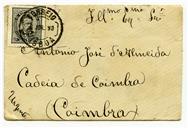 CORREIO
LISBOA
Ill.mo Snr.
António José d'Almeida
Cadeia de Coimbra
(Coimbra)
Urgente